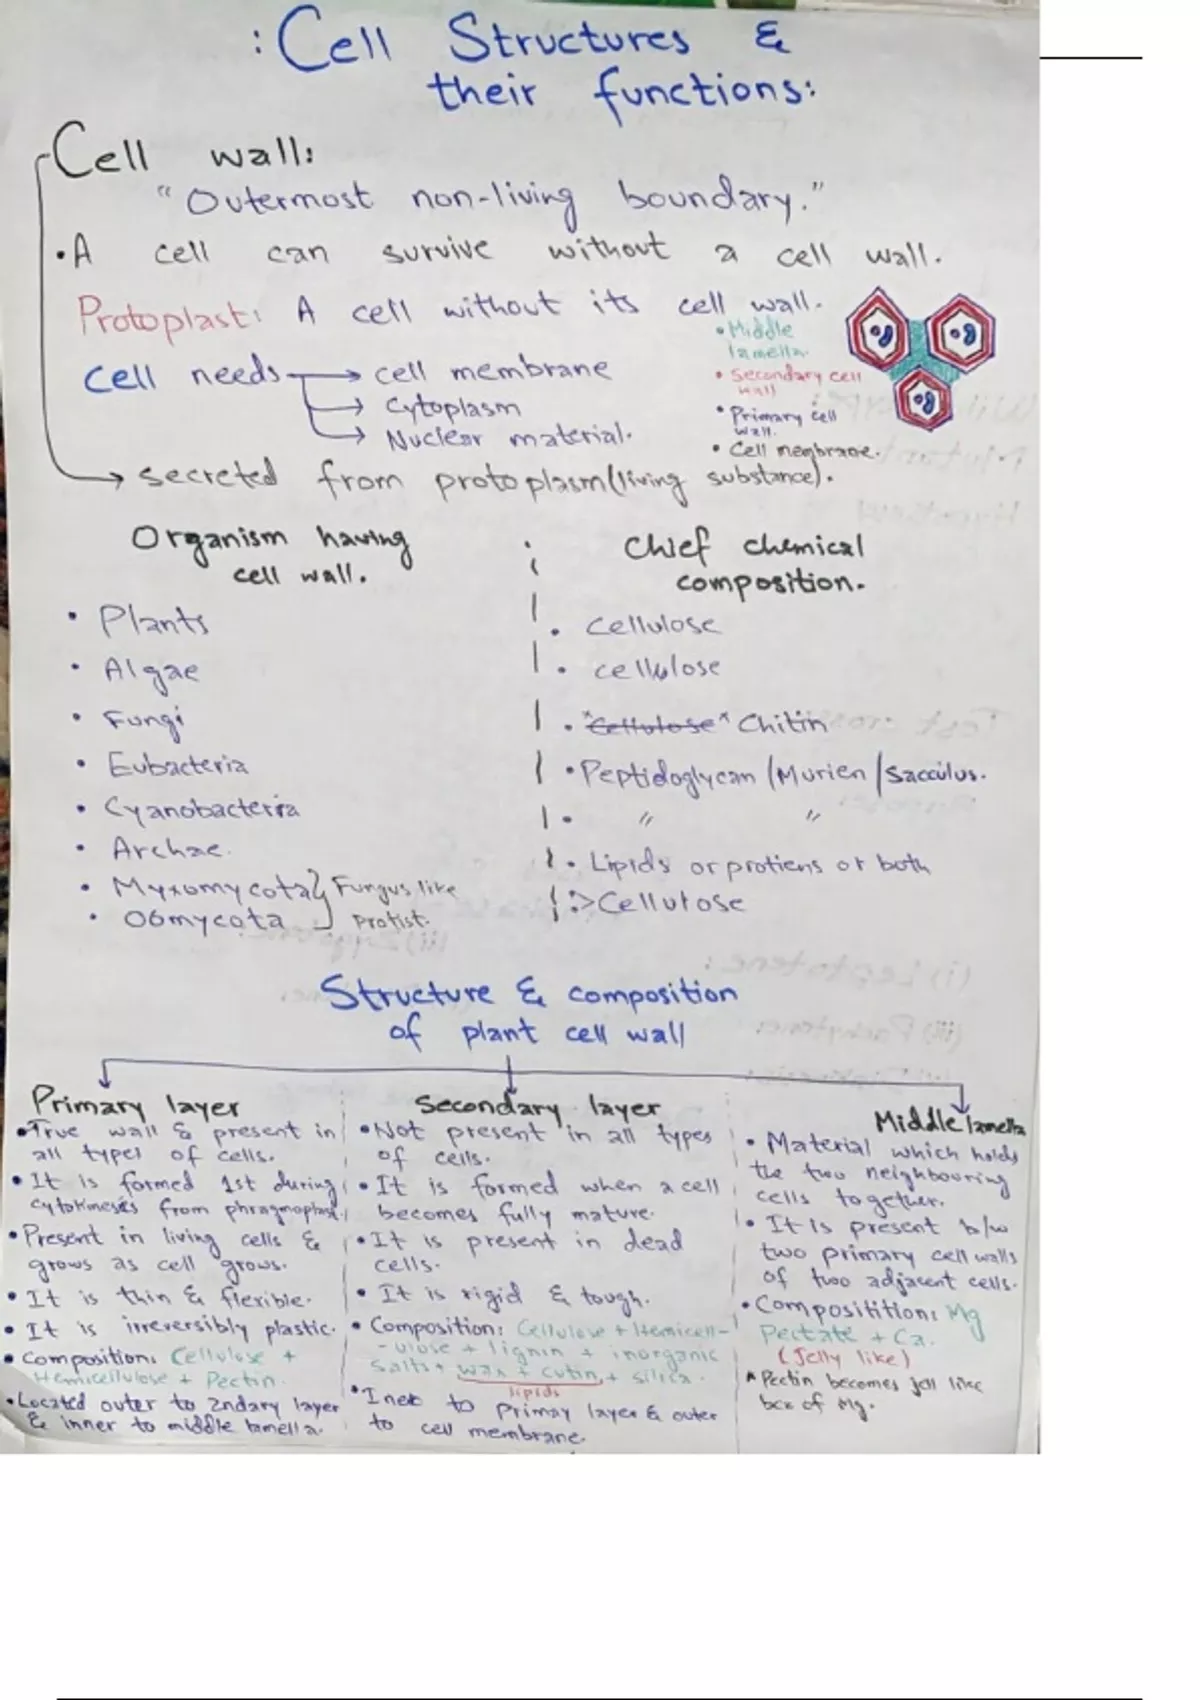 :Cell Structures &
their functions:
Cell wall:
"Outermost non-living boundary."
• A cell can survive without a cell wall.
Protoplast: A cell without its cell wall.
• Middle
lamella.
• Secondary cell
wall
• Primary cell
wall.
• Cell menbrane.
Cell needs → cell membrane
→ Cytoplasm
→ Nuclear material.
→ secreted from protoplasm (living substance).
Organism having
cell wall.
Chief chemical
composition.
• Plants
• cellulose
• Algae
• cellulose
• Fungi
• "Cellulose" Chitin
• Eubacteria
• Peptidoglycan / Murien / Sacculus.
• Cyanobacteria
• " "
• Archae.
• Lipids or protiens or both
• Myxomycota } Fungus like
• Oomycota } Protist.
:> Cellulose
Structure & composition
of plant cell wall
Primary layer
• True wall & present in
all types of cells.
• It is formed 1st during
cytokinesis from phragmoplast.
• Present in living cells &
grows as cell grows.
• It is thin & flexible.
• It is irreversibly plastic.
• Composition: Cellulose +
Hemicellulose + Pectin.
• Located outer to 2ndary layer
& inner to middle lamella.
Secondary layer
• Not present in all types
of cells.
• It is formed when a cell
becomes fully mature.
• It is present in dead
cells.
• It is rigid & tough.
• Composition: Cellulose + Hemicell-
-ulose + lignin + inorganic
salts + wax + cutin + silica.
lipids
• Iner to Primay layer & outer
to cell membrane.
Middle lamella
• Material which holds
the two neighbouring
cells together.
• It is present b/w
two primary cell walls
of two adjacent cells.
• Compositition: Mg
Pectate + Ca.
(Jelly like)
* Pectin becomes jell like
bcz of Mg.